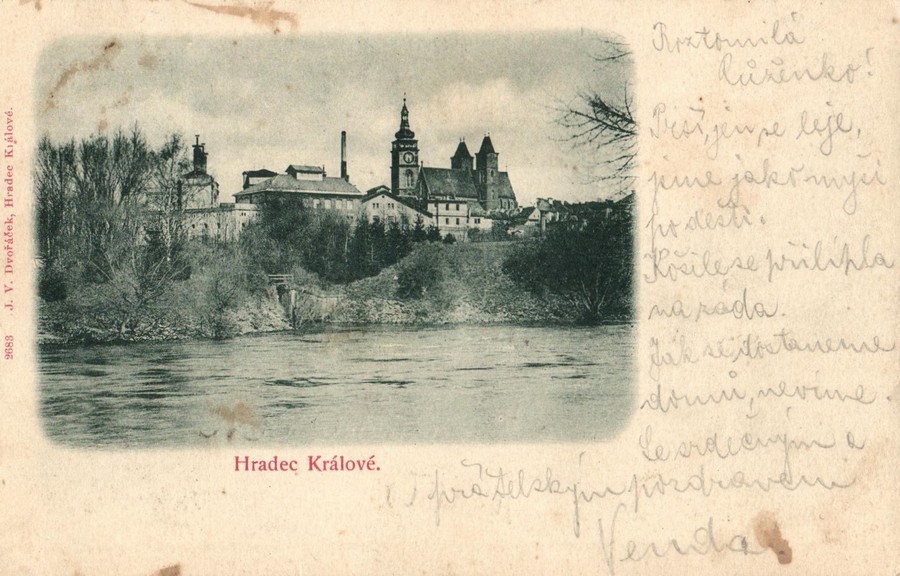 Roztomilá
Růženko!
Prší jen se leje,
jsme jako myši
po dešti.
Košile se přilípla
na záda.
Jak se dostaneme
domů, nevíme.
Se srdečným a
přátelským pozdravem
Venda
Hradec Králové.
2683 J. V. Dvořáček, Hradec Králové.